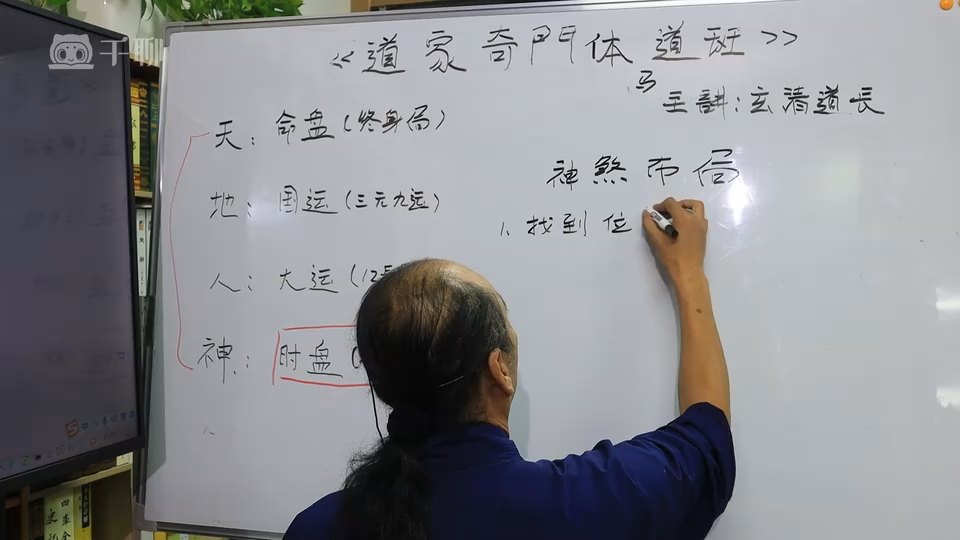 千聊
《道家奇門体道班》
马
主講:玄清道長
天:命盘(终身局)
地:国运(三元九运)
人:大运(12長
神:时盘(
神煞布局
1、找到位
四库全